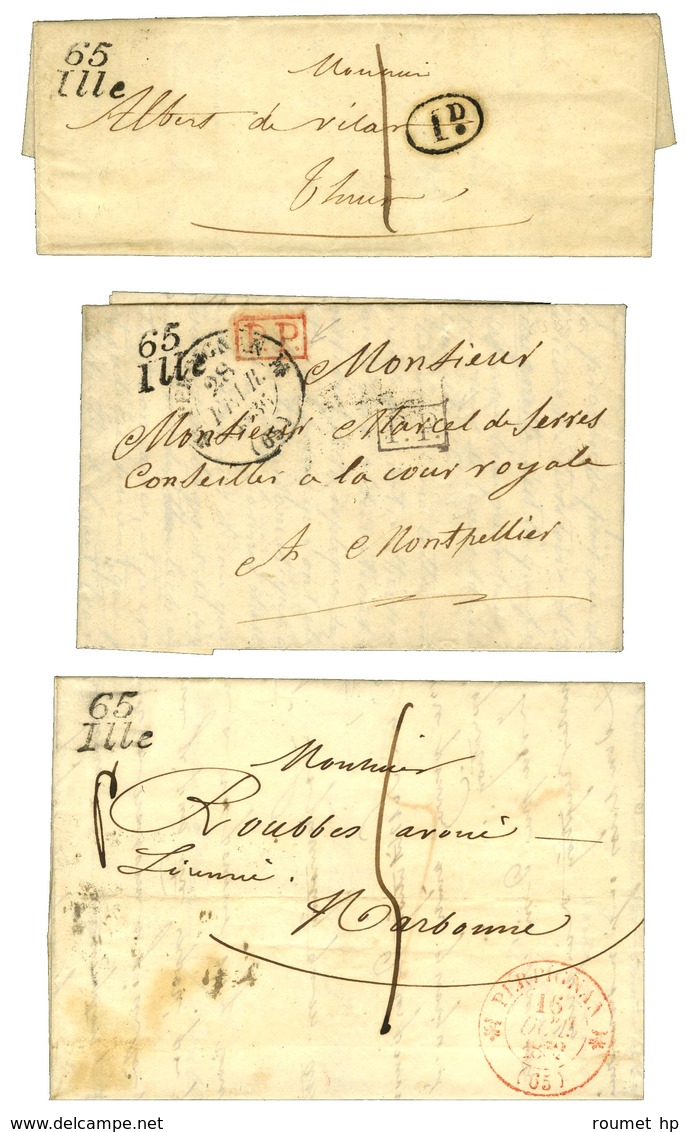 65
Ille
Monsieur
Albert de Vilar
1D.
Thuir
65
Ille
P.P.
PERPIGNAN
28
FEVR.
(65)
Monsieur
P.P.
Monsieur Marcel de Serres
Conseiller a la cour royale
A Montpellier
65
Ille
Monsieur
Roubbes avoué
Licencié.
Narbonne
PERPIGNAN
16
(65)
© roumet hp / delcampe.net